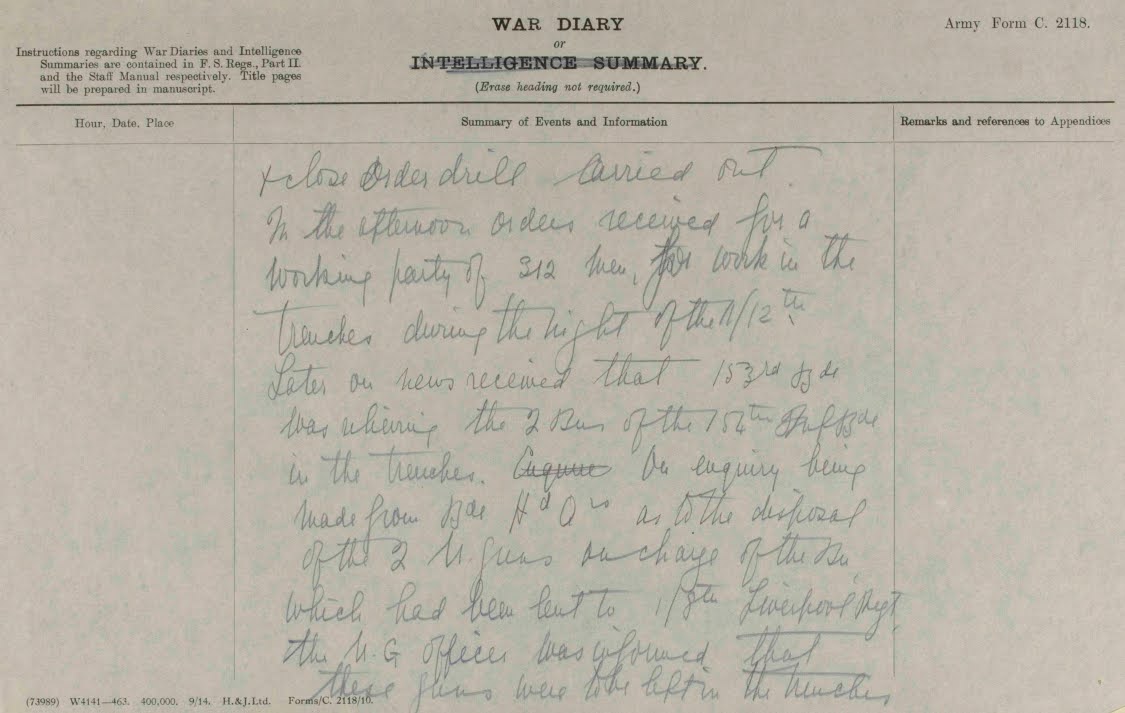 WAR DIARY
or
INTELLIGENCE SUMMARY.
(Erase heading not required.)
Army Form C. 2118.
Instructions regarding War Diaries and Intelligence
Summaries are contained in F. S. Regs., Part II.
and the Staff Manual respectively. Title pages
will be prepared in manuscript.
Hour, Date, Place
Summary of Events and Information
Remarks and references to Appendices
+ close Order drill carried out
In the afternoon orders received for a
working party of 312 men, for work in the
trenches during the night of the 11/12th.
Later on news received that 153rd Bde
was relieving the 2 Bns of the 154th Bde
in the trenches. Enquire On enquiry being
made from Bde Hd Qrs as to the disposal
of the 2 M. guns on charge of the Bn
which had been lent to 1/8th Liverpool Regt
the M.G officer was informed that
these guns were to be left in the trenches
(73989) W4141—463. 400,000. 9/14. H.&J.Ltd. Forms/C. 2118/10.